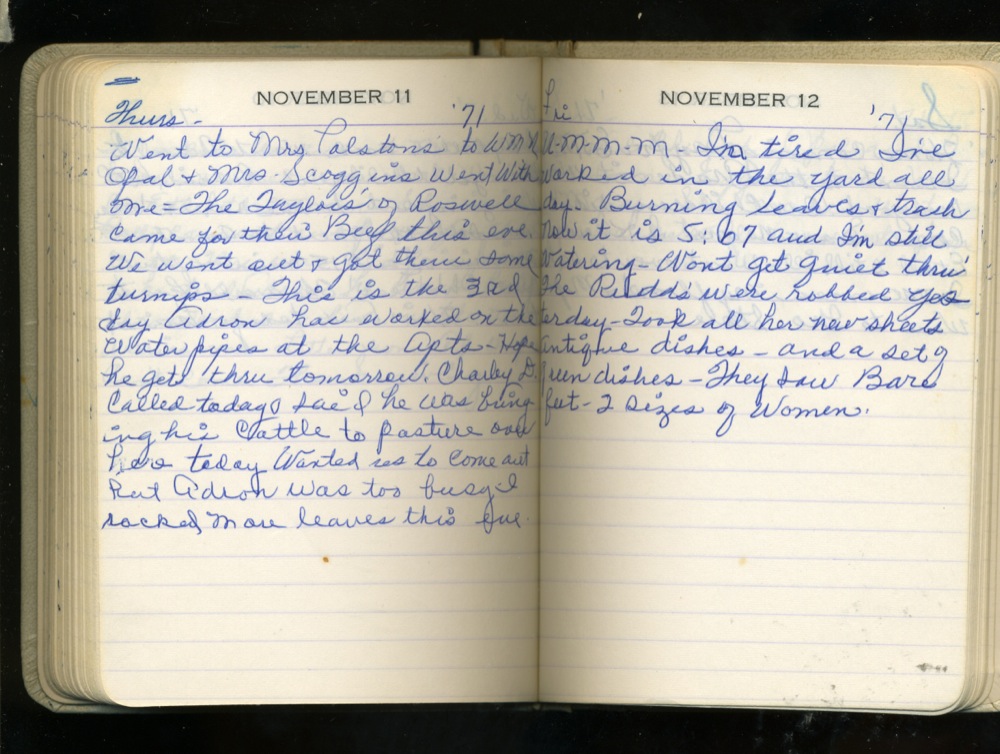 NOVEMBER 11
Thurs- '71
Went to Mrs Palstons to WMU
Opal & Mrs. Scoggins Went With
me = The Taylors of Roswell
came for their Beef this eve.
We went out & got them some
turnips - This is the 3rd
day Adron has worked on the
Water pipes at the Apts - Hope
he gets thru tomorrow. Charley D.
Called today & said he was bring
ing his Cattle to pasture over
here today Wanted us to come out
But Adron was too busy - I
sacked more leaves this eve.
NOVEMBER 12
Fri '71
U-M-M-M- I'm tired I've
worked in the yard all
day. Burning leaves & trash
now it is 5:07 and I'm still
Watering - Wont get quiet thru
The Rudds were robbed Yes
terday - Took all her new sheets
Antique dishes - and a set of
Green dishes - They saw Bare
feet - 2 sizes of Women.